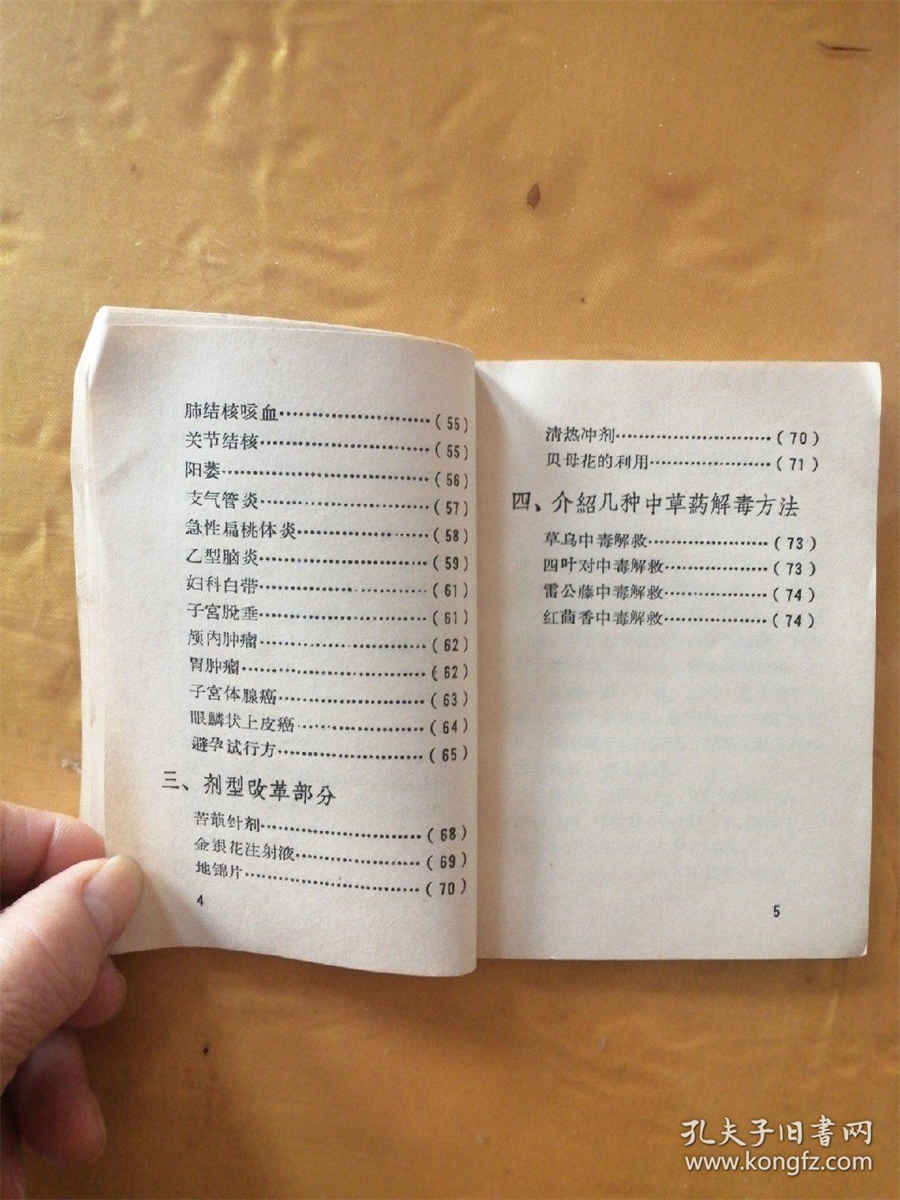 肺结核咳血……………………(55)
关节结核………………………(55)
阳萎……………………………(56)
支气管炎………………………(57)
急性扁桃体炎…………………(58)
乙型脑炎………………………(59)
妇科白带………………………(61)
子宫脱垂………………………(61)
颅内肿瘤………………………(62)
胃肿瘤…………………………(62)
子宫体腺癌……………………(63)
眼鳞状上皮癌…………………(64)
避孕试行方……………………(65)
三、剂型改革部分
针剂………………………(68)
金银花注射液…………………(69)
地锦片…………………………(70)
4
清热冲剂………………………(70)
贝母花的利用…………………(71)
四、介紹几种中草葯解毒方法
草乌中毒解救…………………(73)
四叶对中毒解救………………(73)
雷公藤中毒解救………………(74)
红茴香中毒解救………………(74)
5
孔夫子旧書网
www.kongfz.com